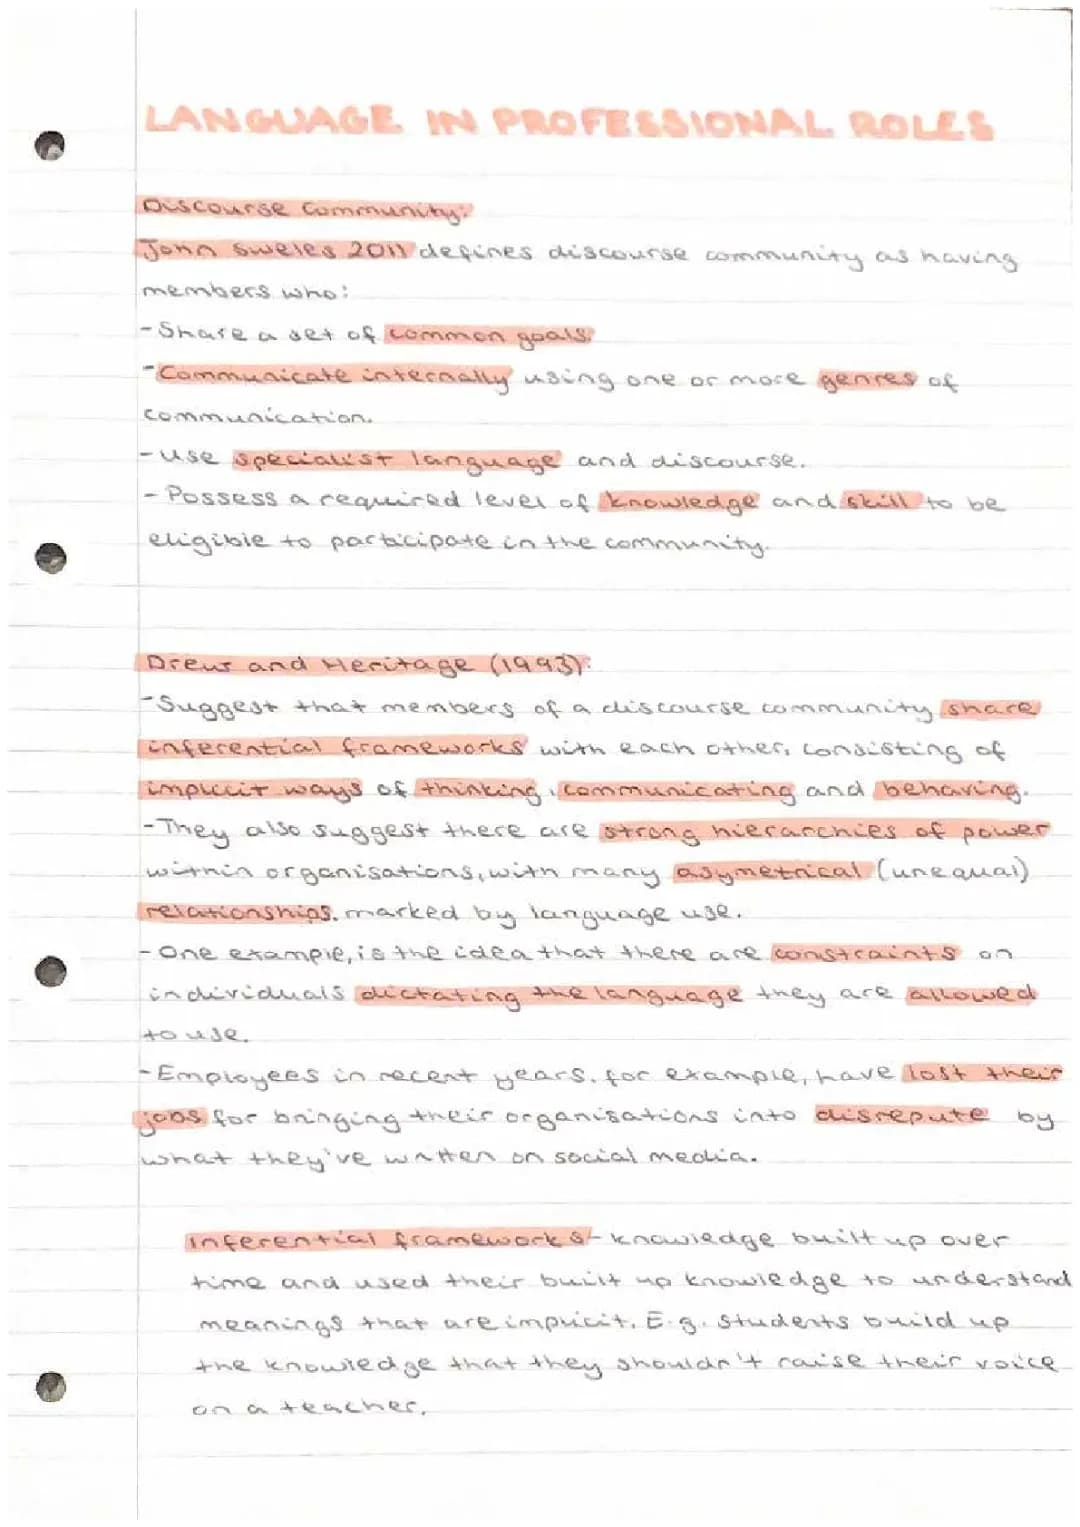 LANGUAGE IN PROFESSIONAL ROLES
Discourse Community:
John Sweles 2011 defines discourse community as having
members who:
- Share a set of common goals.
- Communicate internally using one or more genres of
communication.
- use specialist language and discourse.
- Possess a required level of knowledge and skill to be
eligible to participate in the community.
Drew and Heritage (1993):
- Suggest that members of a discourse community share
inferential frameworks with each other, consisting of
implicit ways of thinking, communicating and behaving.
- They also suggest there are strong hierarchies of power
within organisations, with many asymetrical (unequal)
relationships. marked by language use.
- One example, is the idea that there are constraints on
individuals dictating the language they are allowed
to use.
- Employees in recent years. for example, have lost their
jobs for bringing their organisations into disrepute by
what they've written on social media.
Inferential frameworks - knowledge built up over
time and used their built up knowledge to understand
meanings that are implicit. E.g. students build up
the knowledge that they shouldn't raise their voice
on a teacher.